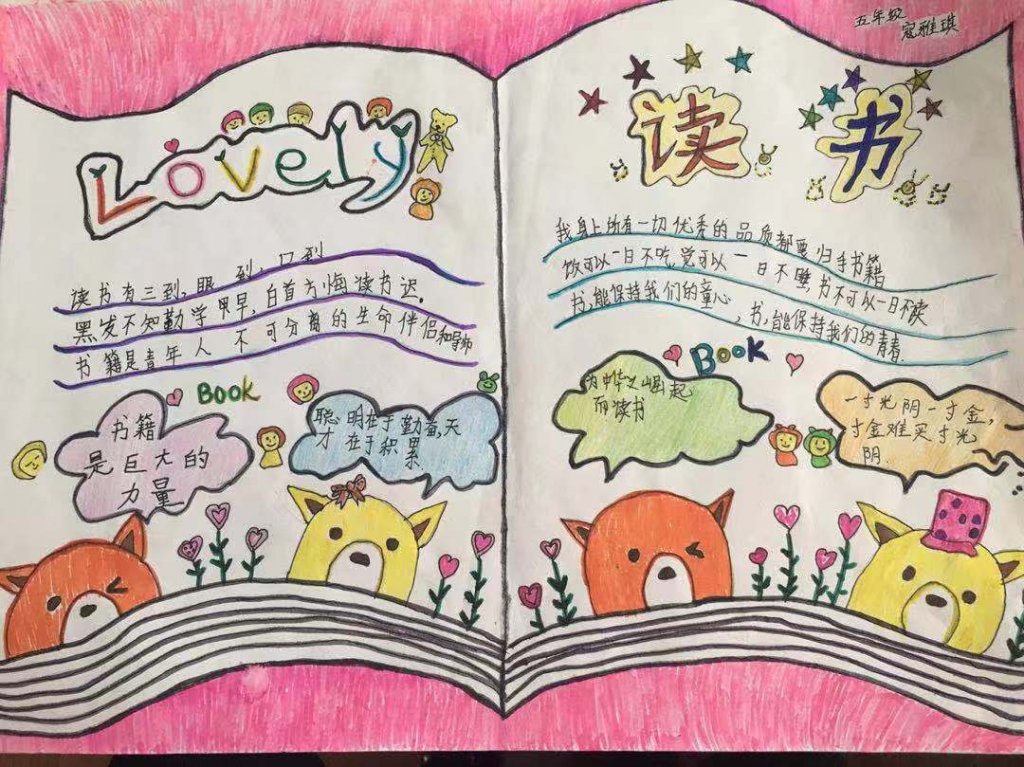 五年级
寇雅琪
Lovely
读书有三到,眼到,口到
黑发不知勤学早,白首方悔读书迟。
书籍是青年人不可分离的生命伴侣和导师
Book
书籍
是巨大的
力量
聪明在于勤奋,天
才在于积累
读书
我身上所有一切优秀的品质都要归于书籍
饭可以一日不吃,觉可以一日不睡,书不可以一日不读
书,能保持我们的童心,书,能保持我们的青春
Book
为中华之崛起
而读书
一寸光阴一寸金,
寸金难买寸光
阴